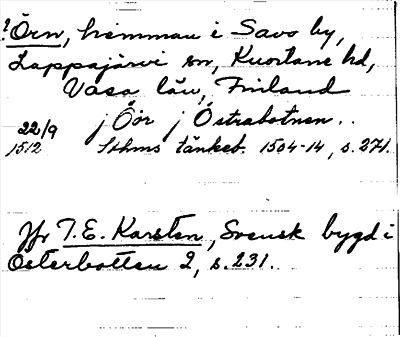 ? Örn, hemman i Savo by,
Lappajärvi sn, Kuortane hd,
Vasa län, Finland
j Öör j Östrabotnen..
22/9
1512 Sthms tänkeb. 1504-14, s. 271.
Jfr T. E. Karsten, Svensk bygd i
Österbotten 2, s. 231.